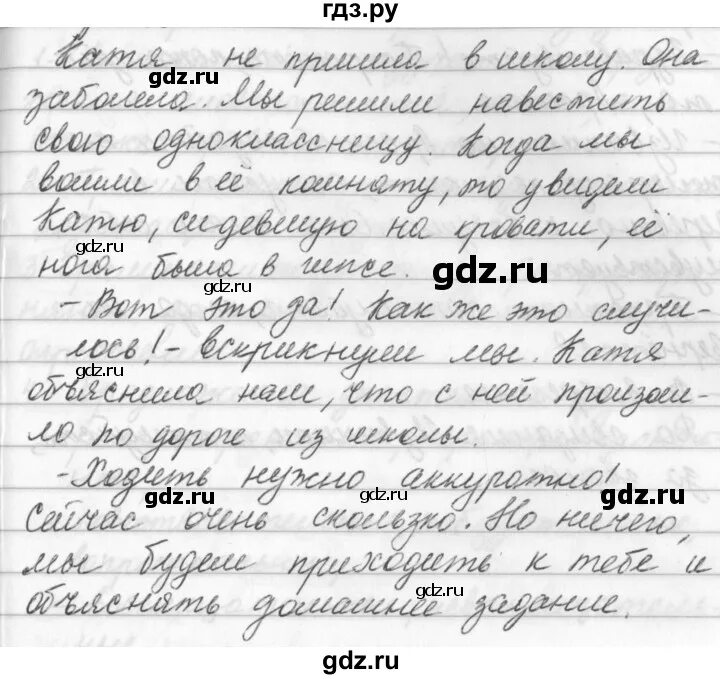 гдз.ру
Катя не пришла в школу. Она
заболела. Мы решили навестить
свою одноклассницу. Когда мы
вошли в её комнату, то увидели
Катю, сидевшую на кровати, её
нога была в гипсе.
- Вот это да! Как же это случи-
лось! - вскрикнули мы. Катя
объяснила нам, что с ней произош-
ло по дороге из школы.
- Ходить нужно аккуратно!
Сейчас очень скользко. Но ничего,
мы будем приходить к тебе и
объяснять домашнее задание.
gdz.ru
gdz.ru
gdz.ru
gdz.ru
gdz.ru
gdz.ru
gdz.ru
gdz.ru
gdz.ru
gdz.ru
gdz.ru
gdz.ru